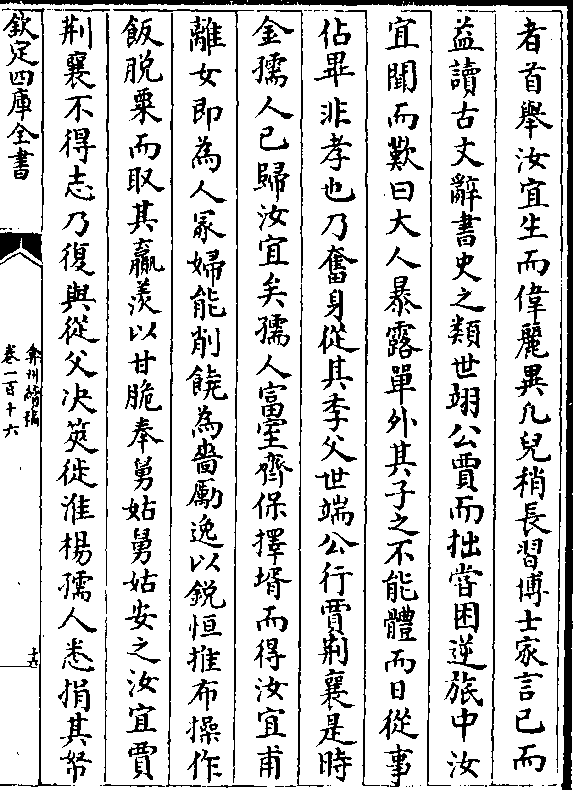 者首舉汝宜生而偉麗異凡兒稍長習博士家言已而
益讀古文辭書史之類世翊公賈而拙嘗困逆旅中汝
宜聞而歎曰大人暴露單外其子之不能體而日從事
佔畢非孝也乃奮身從其季父世端公行賈荆襄是時
金孺人已歸汝宜矣孺人富室齊保擇壻而得汝宜甫
離女即為人冢婦能削饒為嗇勵逸以銳恒推布操作
飯脱粟而取其羸羨以甘脆奉舅姑舅姑安之汝宜賈
荆襄不得志乃復與從父决筴徙淮楊孺人悉捐其帑
欽定四庫全書
弇州續稿
卷一百十六